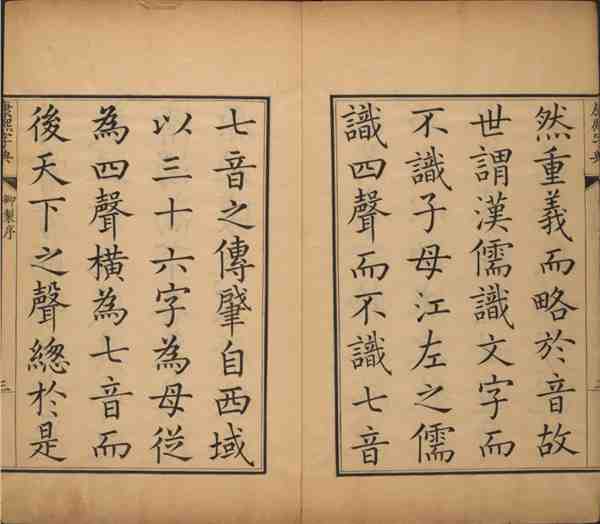 然重義而略於音故
世謂漢儒識文字而
不識子母江左之儒
識四聲而不識七音
七音之傳肇自西域
以三十六字為母從
為四聲橫為七音而
後天下之聲總於是
康熙字典
御製序
三